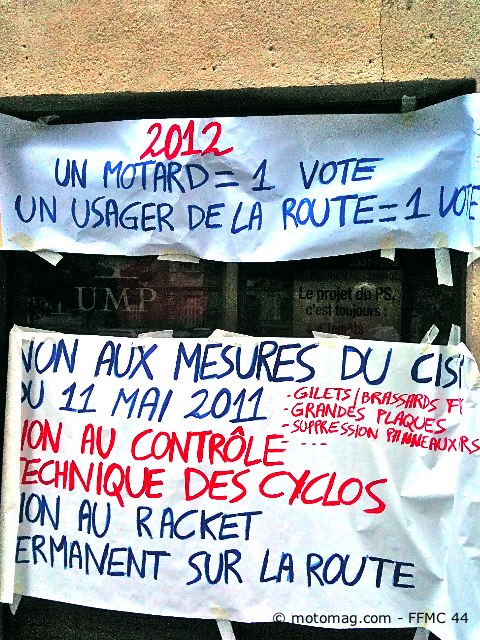 2012
UN MOTARD = 1 VOTE
UN USAGER DE LA ROUTE = 1 VOTE
UMP
Le projet du PS,
c'est toujours :
NON AUX MESURES DU CISI
DU 11 MAI 2011
- GILETS/BRASSARDS
- GRANDES PLAQUES
- SUPPRESSION PANNEAUX RS
- ....
NON AU CONTRÔLE
TECHNIQUE DES CYCLOS
NON AU RACKET
PERMANENT SUR LA ROUTE
© motomag.com - FFMC 44